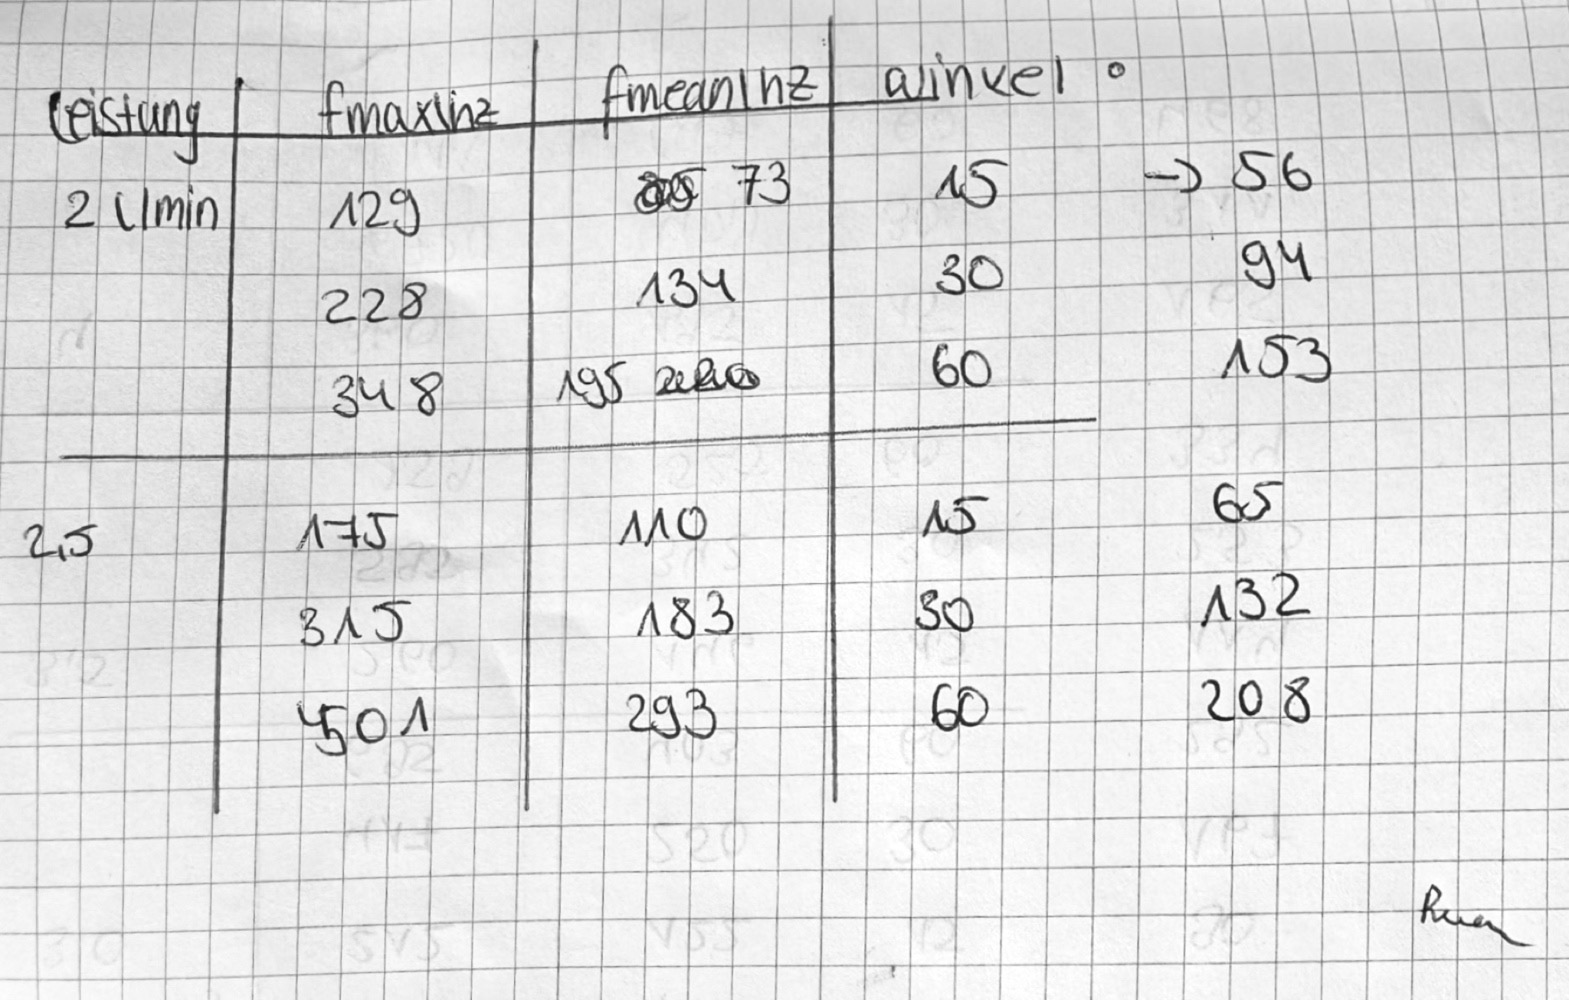 Leistung fmax|hz fmean|hz winkel °
2 l/min 129 73 15 → 56
228 134 30 94
348 195 60 153
2,5 175 110 15 65
315 183 30 132
501 293 60 208